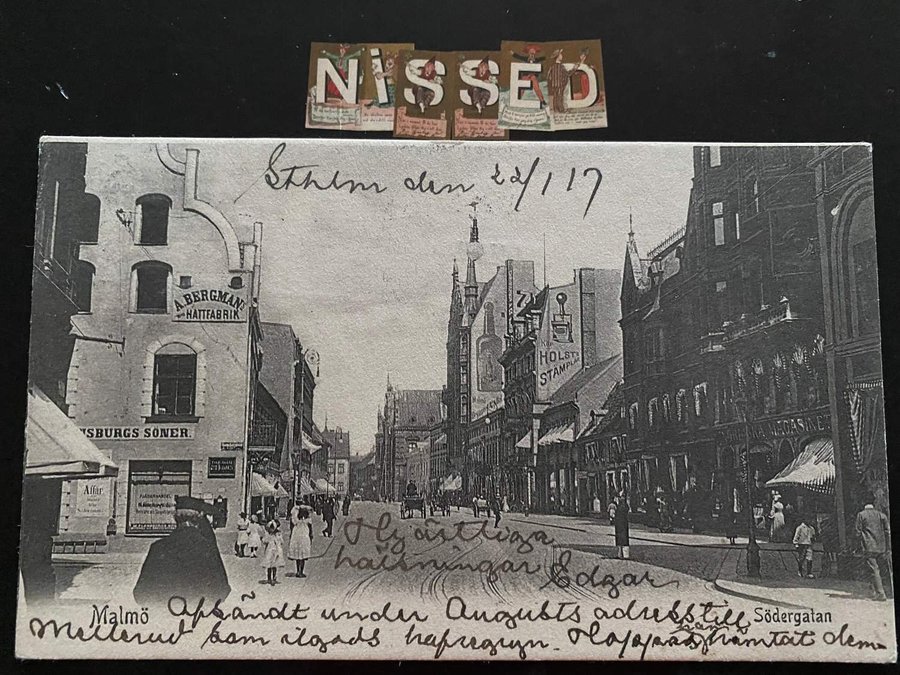 NiSSED
Sthlm den 22/1 17
A. BERGMAN
HATTFABRIK
HOLSTS
STÄMPLA
SBURGS SÖNER.
Affär
Hjärtliga
hälsningar Edgar
Malmö
Södergatan
Afsändt under Augusts adress till
Mellerud som ilgods hafregryn. Hoppas han hämtat dem